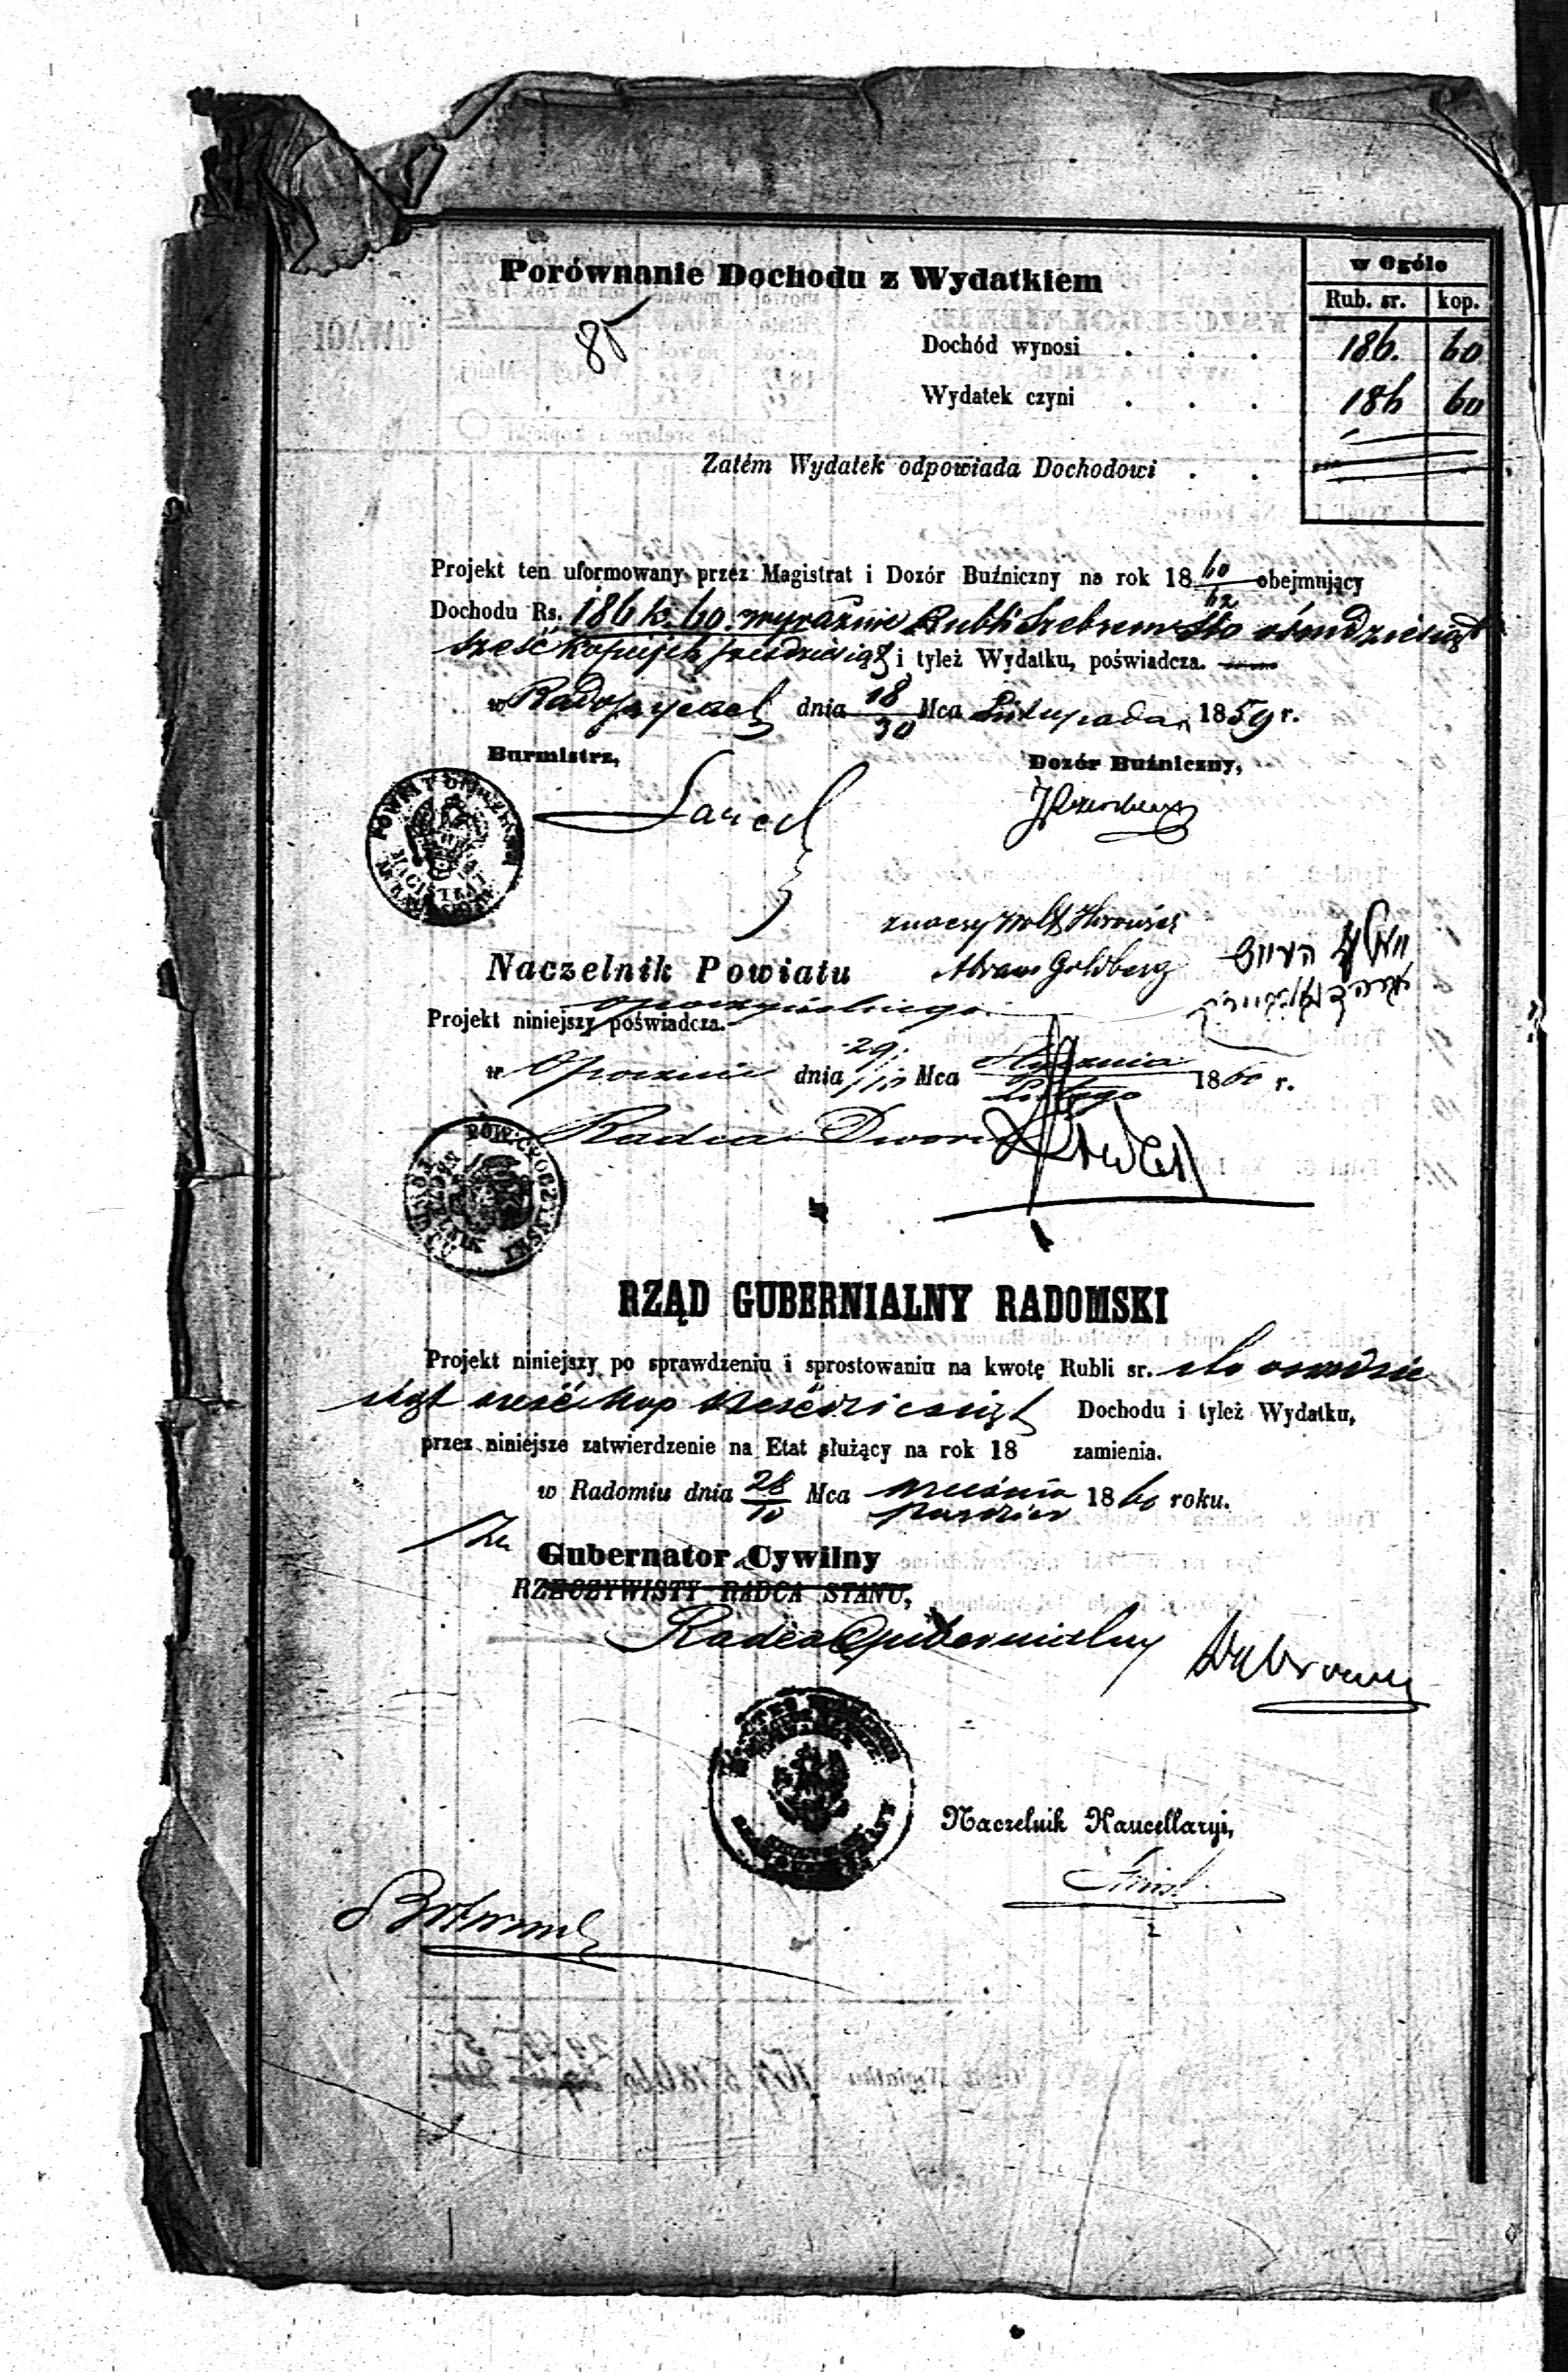 Porównanie Dochodu z Wydatkiem
w Ogóle
Rub. sr. kop.
85
Dochód wynosi . . . 186. 60
Wydatek czyni . . . 186 60
Zatém Wydatek odpowiada Dochodowi . .
Projekt ten uformowany przez Magistrat i Dozór Buźniczny na rok 18 60/62 obejmujący
Dochodu Rs. 186 k. 60. wyraźnie Rubli Srebrem Sto ośmdziesiąt
sześć kopiejek sześdziesiąt i tyleż Wydatku, poświadcza.
w Radoszycach dnia 18/30 Mca Listopada 1859 r.
Burmistrz, Dozór Buźniczny,
znaczy Horowicz
Abram Goldberg
Naczelnik Powiatu
Opoczyńskiego
Projekt niniejszy poświadcza.
w Opocznie dnia 29/10 Mca Stycznia/Lutego 1860 r.
Radca Dworu
RZĄD GUBERNIALNY RADOMSKI
Projekt niniejszy po sprawdzeniu i sprostowaniu na kwotę Rubli sr. sto osmdzie
siąt sześć kop sześćdziesiąt Dochodu i tyleż Wydatku,
przez niniejsze zatwierdzenie na Etat służący na rok 18 zamienia.
w Radomiu dnia 28/10 Mca Września/Paździer 1860 roku.
Za Gubernator Cywilny
RZECZYWISTY RADCA STANU,
Radca Gubernialny
Naczelnik Kancellaryi,